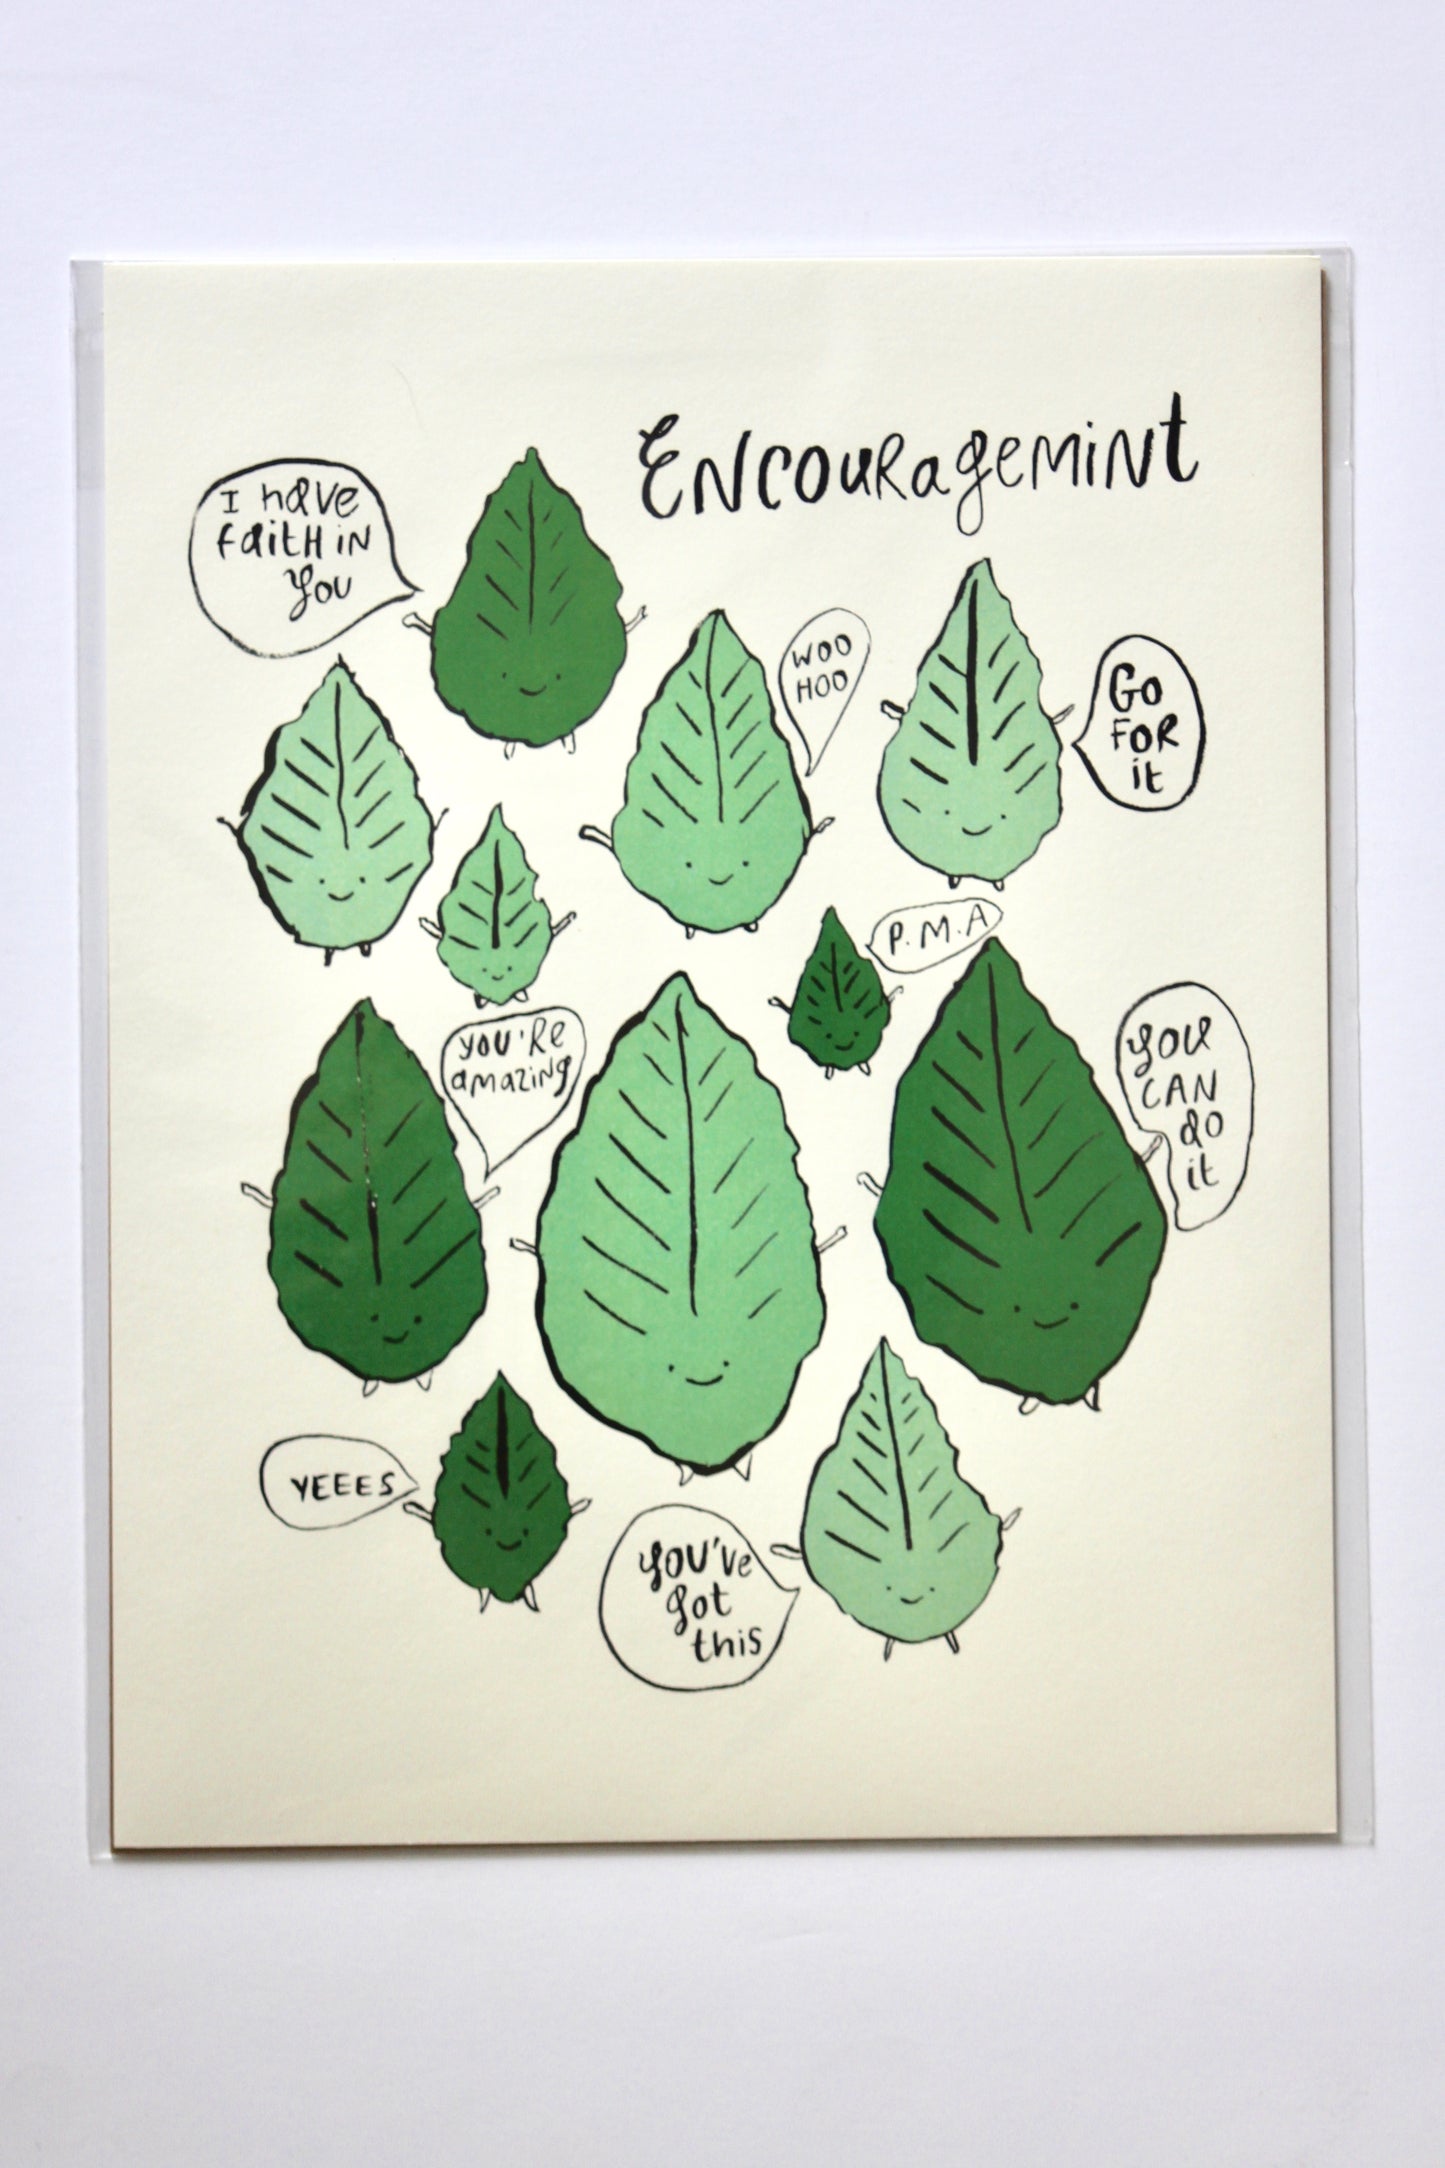 Encouragemint
I have
faith in
you
Woo
Hoo
Go
For
it
P.M.A
you're
amazing
you
can
do
it
YEEES
you've
got
this